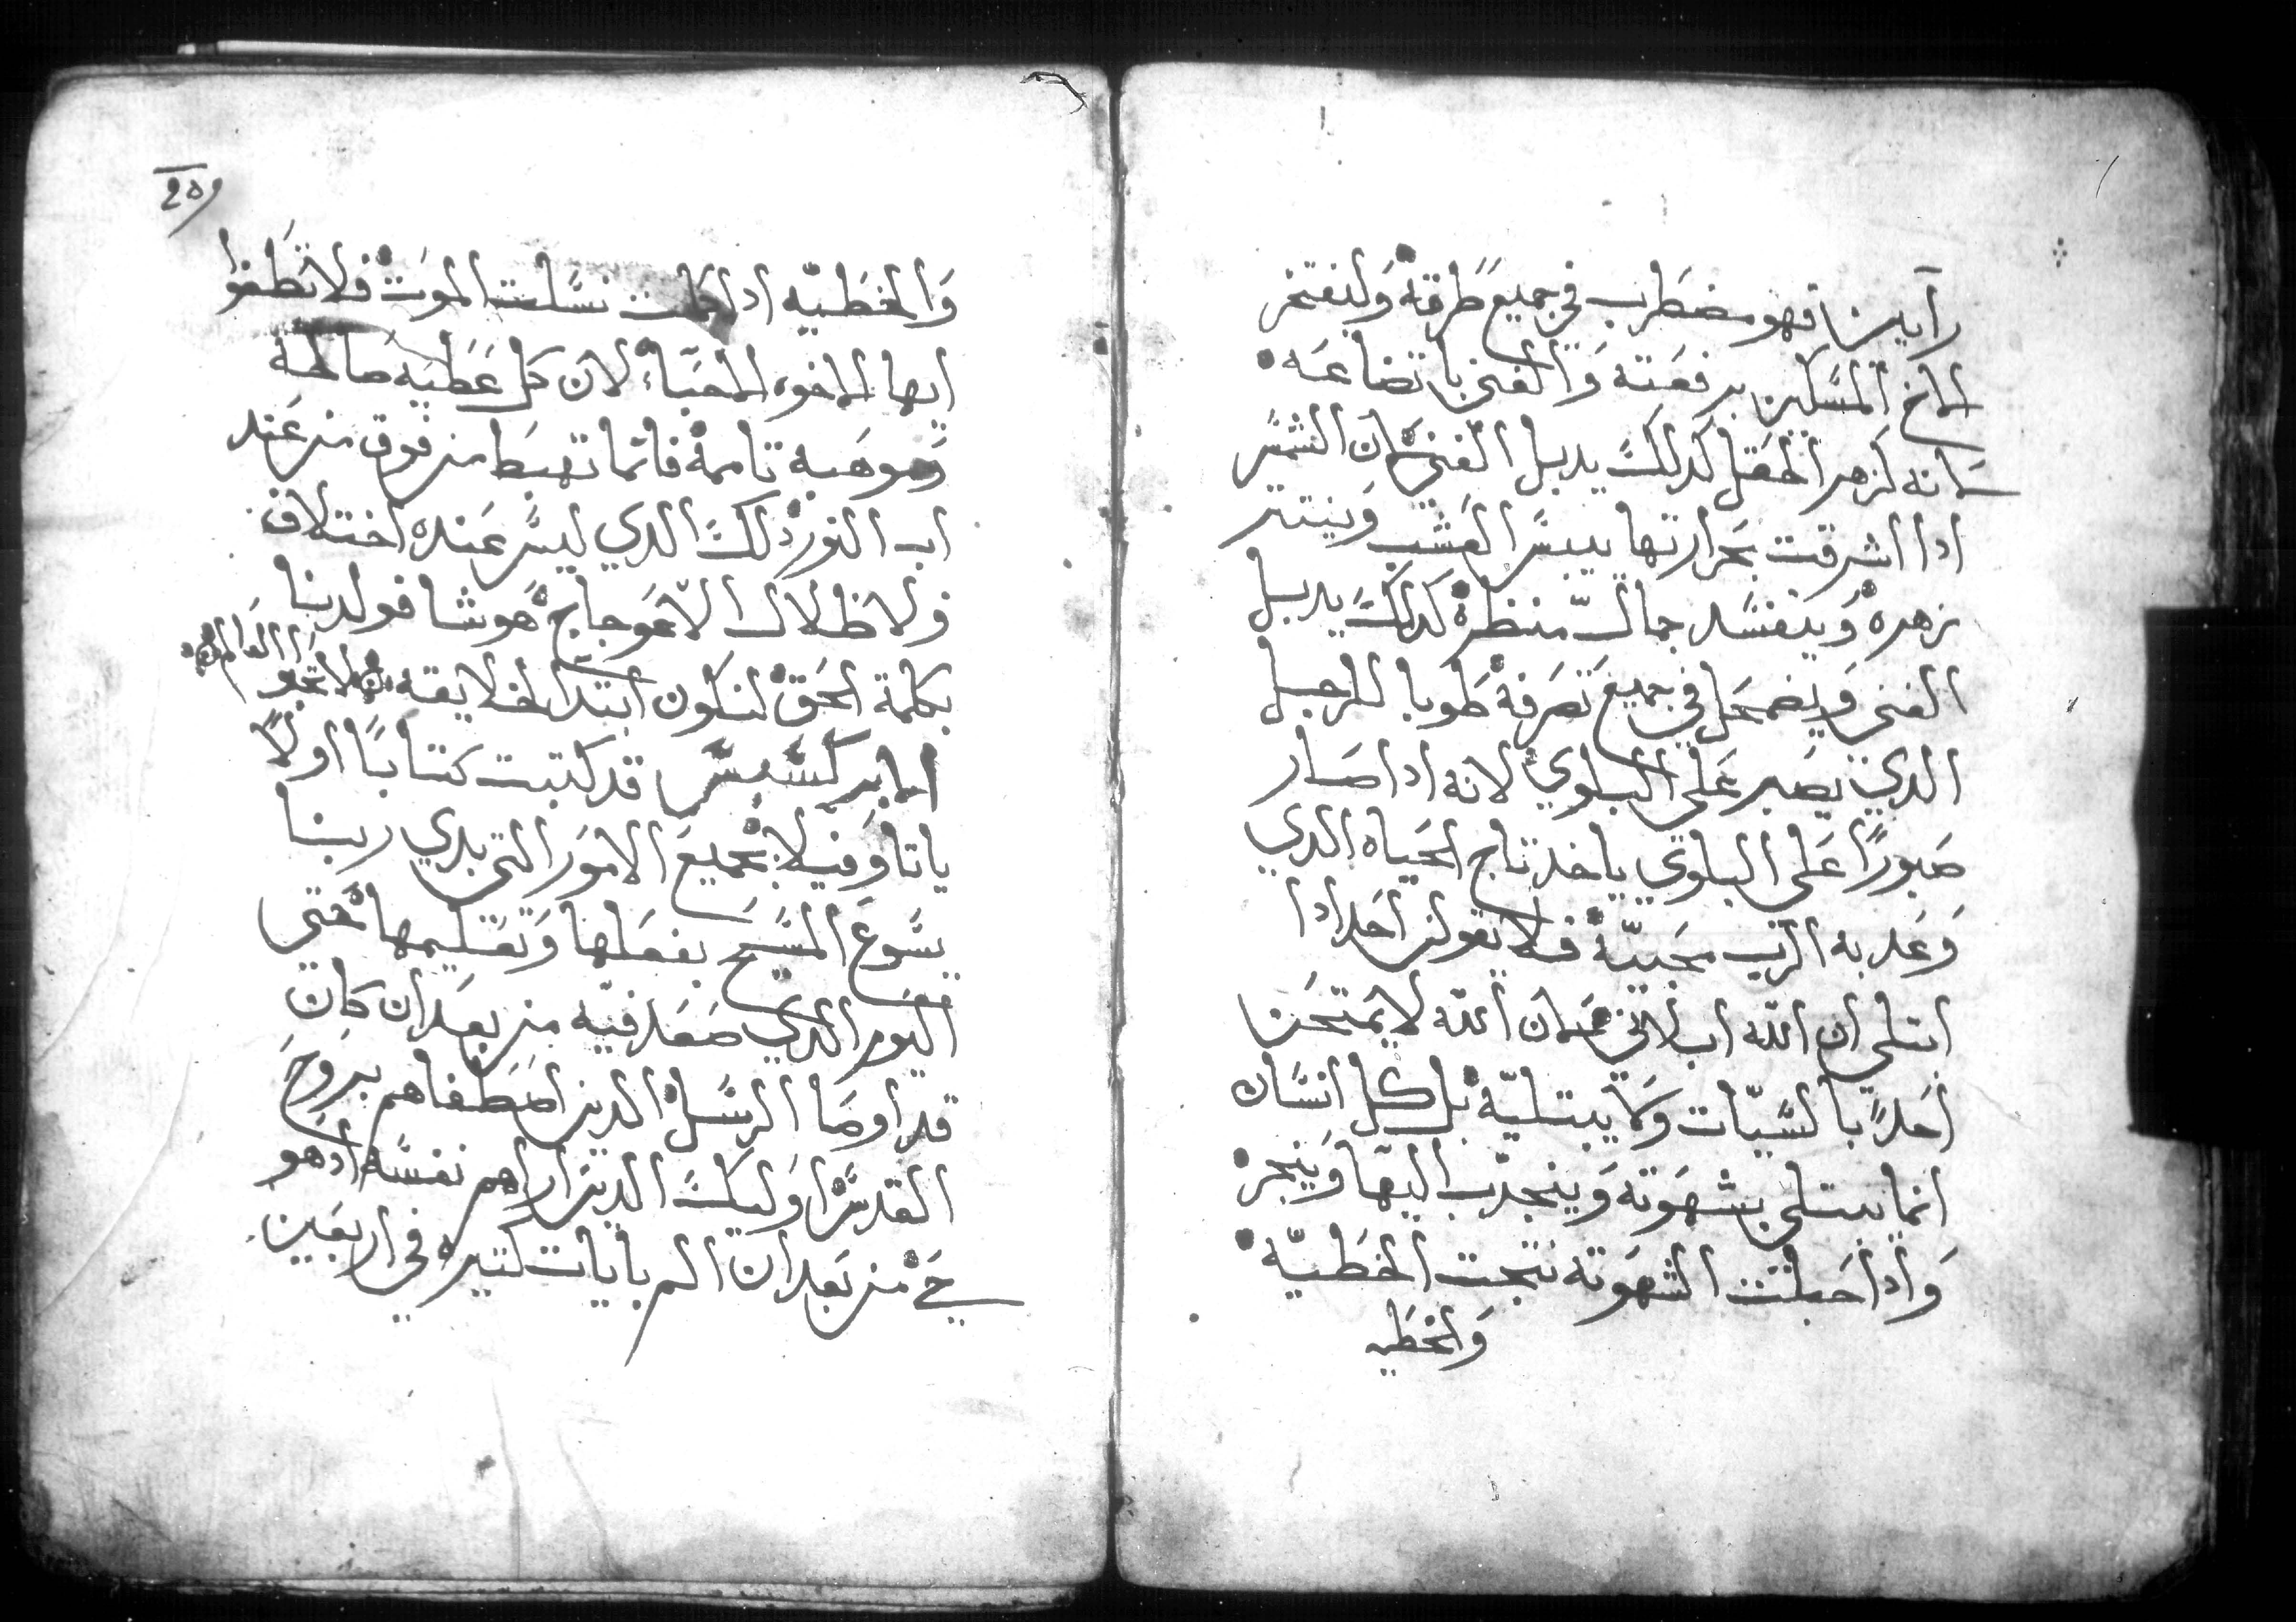 رأيين فهو مضطرب في جميع طرقه وليفتخر
الاخ المسكين برفعته والغني باتضاعه
لانه كزهر الحقل كدلك يدبل الغني لان الشمس
ادا اشرقت بحرارتها ييبس العشب وينتتر
زهره ويفسد جمال منظره كدلك يدبل
الغني ويضمحل في جميع تصرفه طوبا للرجل
الدي يصبر على البلوي لانه ادا صار
صبورًا على البلوي ياخد تاج الحياه الدي
وعد به الرب محبيه فلا يقولن احد ادا
ابتلى ان الله ابلاني لان الله لا يمتحن
احدًا بالسيات ولا يبتليه بل كل انسان
انما يبتلى بشهوته وينجدب اليها وينجر
وادا حبلت الشهوته نتجت الخطيه
والخطيه
209
والخطيه ادا كملت نسلت الموت فلا تطغوا
ايها الاخوه الاحبا لان كل عطيه صالحه
وموهبه تامه فانما تهبط من فوق من عند
اب النور دلك الدي ليس عنده اختلاف
ولا ظلال الاعوجاج هو شا فولدنا
بكلمة الحق لنكون ابتدا لخلايقه لا تحبو
ا العالم
الابركسيس قد كتبت كتابًا اولًا
يا تاوفيلا بجميع الامور التي بدي ربنا
يسوع المسيح بفعلها وتعليمها حتى
اليوم الدي صعد فيه من بعد ان كان
قد اوصا الرسل الدين اصطفاهم بروح
القدس اوليك الدين اراهم نفسه ادهو
حي من بعد ان الم بايات كتيره في اربعين